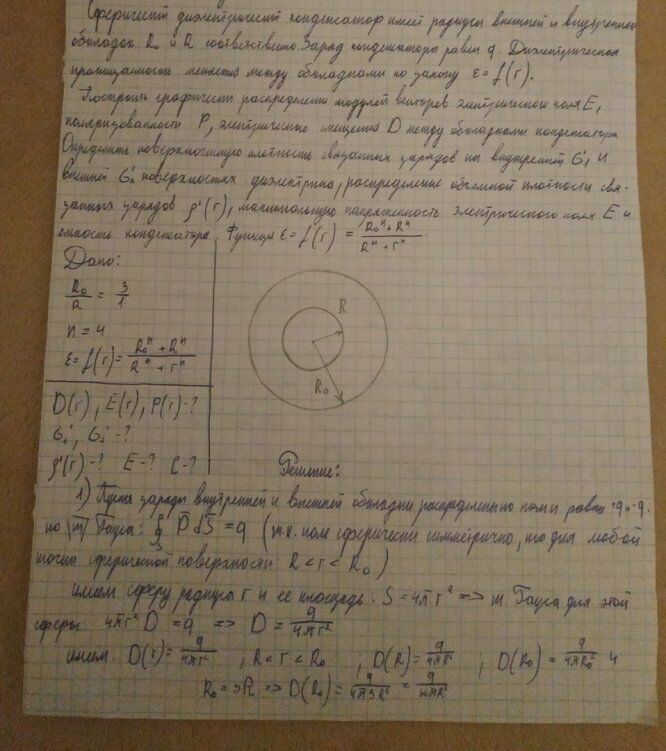 Сферический диэлектрический конденсатор имеет радиусы внешней и внутренней
обкладок R₀ и R соответственно. Заряд конденсатора равен q. Диэлектрическая
проницаемость меняется между обкладками по закону ε = f(r).
Построить графически распределение модулей векторов электрического поля E,
поляризованности P, электрического смещения D между обкладками конденсатора
Определить поверхностную плотность связанных зарядов на внутренней σ'₁ и
внешней σ'₂ поверхностях диэлектрика, распределение объемной плотности свя-
занных зарядов ρ'(r), максимальную напряженность электрического поля E и
емкость конденсатора. Функция ε = f(r) = (R₀ⁿ + Rⁿ)/(Rⁿ + rⁿ)
Дано:
R₀/R = 3/1
R
n = 4
R₀
ε = f(r) = (R₀ⁿ + Rⁿ)/(Rⁿ + rⁿ)
D(r), E(r), P(r) - ?
ρ'(r) - ? E - ? C - ?
Решение:
1) Пусть заряды внутренней и внешней обкладки распределены
по [m] Гауса: ∮ D̄ dS̄ = q (т.к. поле сферически симметрично, то для любой
точки сферической поверхности: R < r < R₀)
имеем сферу радиуса r и ее площадь. S = 4πr² => т. Гауса для этой
сферы: 4πr² D = q => D = q/4πr²
имеем: D(r) = q/4πr² , R < r < R₀ ; D(R) = q/4πR² ; D(R₀) = q/4πR₀² и
R₀ = 3R => D(R₀) =